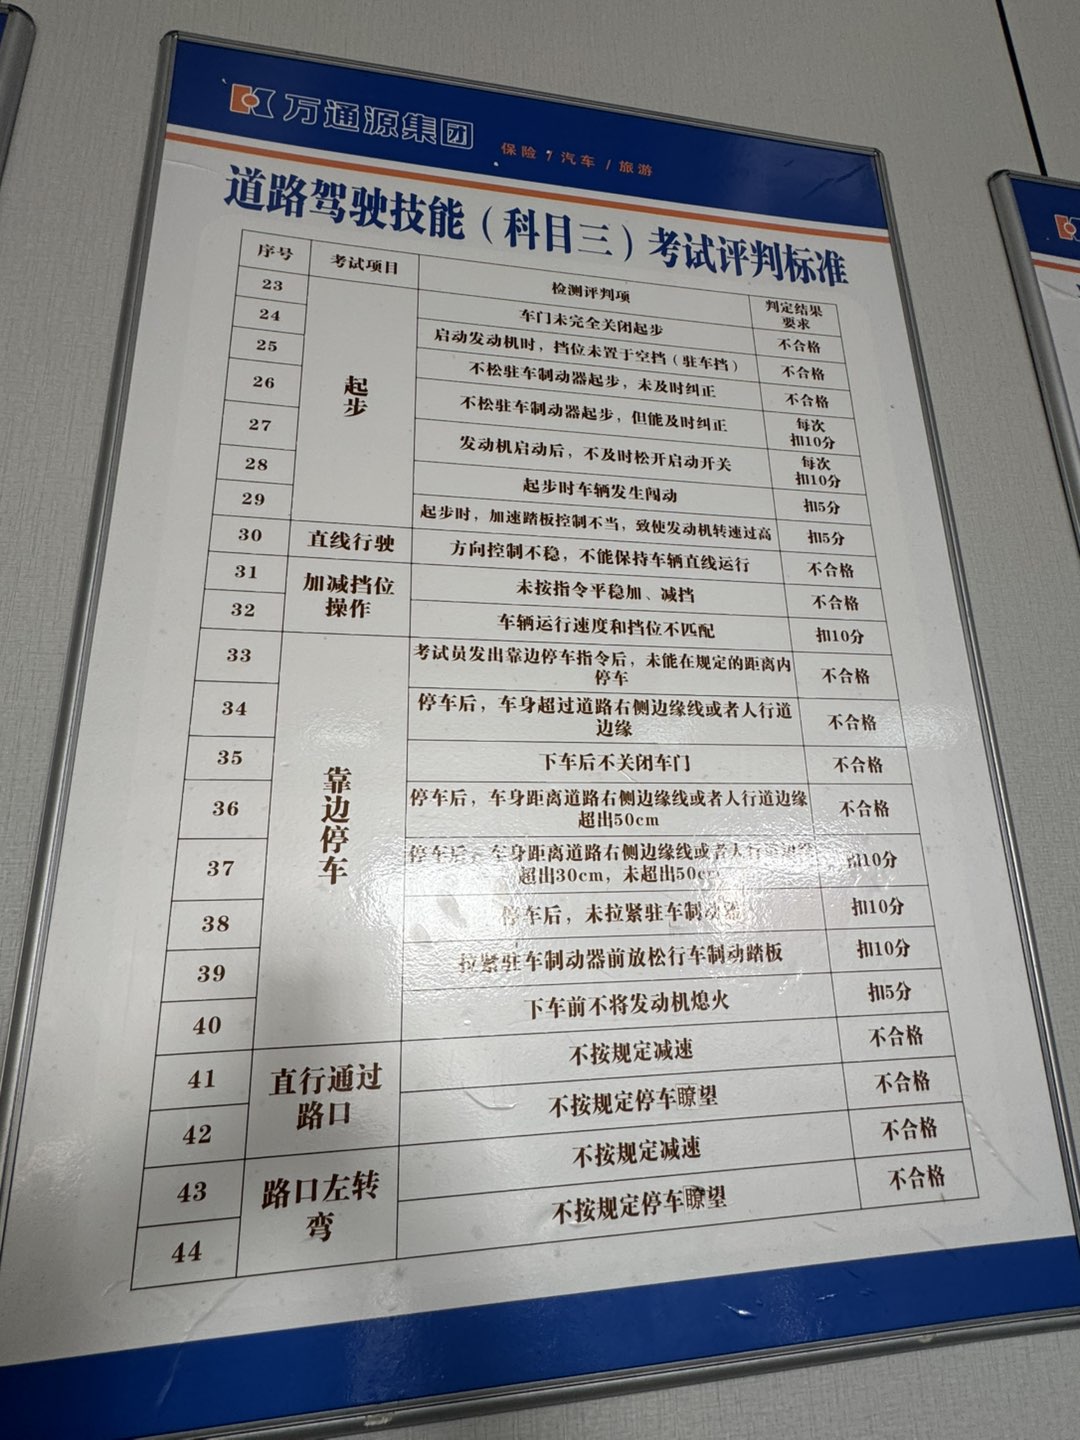 万通源集团
保险 / 汽车 / 旅游
道路驾驶技能（科目三）考试评判标准
序号 考试项目 检测评判项 判定结果要求
23 起步 车门未完全关闭起步 不合格
24 启动发动机时，挡位未置于空挡（驻车挡） 不合格
25 不松驻车制动器起步，未及时纠正 不合格
26 不松驻车制动器起步，但能及时纠正 每次扣10分
27 发动机启动后，不及时松开启动开关 每次扣10分
28 起步时车辆发生闯动 扣5分
29 起步时，加速踏板控制不当，致使发动机转速过高 扣5分
30 直线行驶 方向控制不稳，不能保持车辆直线运行 不合格
31 加减挡位操作 未按指令平稳加、减挡 不合格
32 车辆运行速度和挡位不匹配 扣10分
33 靠边停车 考试员发出靠边停车指令后，未能在规定的距离内停车 不合格
34 停车后，车身超过道路右侧边缘线或者人行道边缘 不合格
35 下车后不关闭车门 不合格
36 停车后，车身距离道路右侧边缘线或者人行道边缘超出50cm 不合格
37 停车后，车身距离道路右侧边缘线或者人行道边缘超出30cm，未超出50cm 扣10分
38 停车后，未拉紧驻车制动器 扣10分
39 拉紧驻车制动器前放松行车制动踏板 扣10分
40 下车前不将发动机熄火 扣5分
41 直行通过路口 不按规定减速 不合格
42 不按规定停车瞭望 不合格
43 路口左转弯 不按规定减速 不合格
44 不按规定停车瞭望 不合格